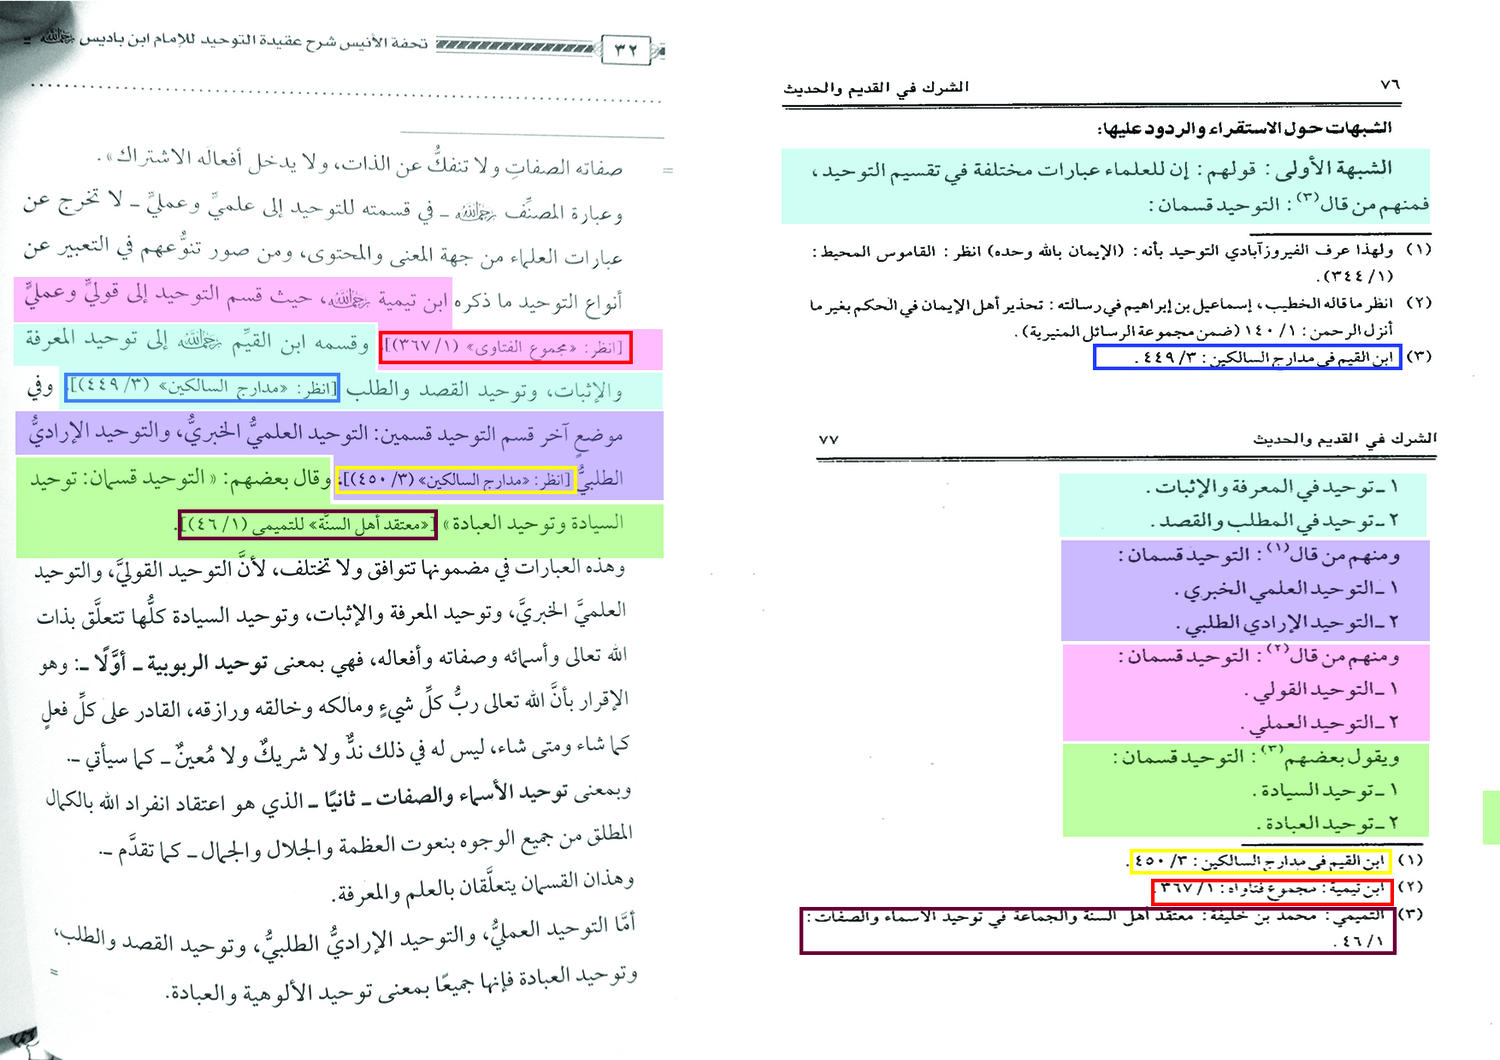 تحفة الأنيس شرح عقيدة التوحيد للإمام ابن باديس رحمه الله
٣٢
صفاته الصفاتِ ولا تنفكُّ عن الذات، ولا يدخل أفعاله الاشتراك».
=
وعبارة المصنِّف رحمه الله ـ في قسمته للتوحيد إلى علميٍّ وعمليٍّ ـ لا تخرج عن
عبارات العلماء من جهة المعنى والمحتوى، ومن صور تنوُّعهم في التعبير عن
أنواع التوحيد ما ذكره ابن تيمية رحمه الله، حيث قسم التوحيد إلى قوليٍّ وعمليٍّ
[انظر: «مجموع الفتاوى» (١/ ٣٦٧)]، وقسمه ابن القيِّم رحمه الله إلى توحيد المعرفة
والإثبات، وتوحيد القصد والطلب [انظر: «مدارج السالكين» (٣/ ٤٤٩)]، وفي
موضعٍ آخر قسم التوحيد قسمين: التوحيد العلميُّ الخبريُّ، والتوحيد الإراديُّ
الطلبيُّ [انظر: «مدارج السالكين» (٣/ ٤٥٠)]، وقال بعضهم: «التوحيد قسمان: توحيد
السيادة وتوحيد العبادة» [«معتقد أهل السنَّة» للتميمي (١/ ٤٦)].
وهذه العبارات في مضمونها تتوافق ولا تختلف، لأنَّ التوحيد القوليَّ، والتوحيد
العلميَّ الخبريَّ، وتوحيد المعرفة والإثبات، وتوحيد السيادة كلُّها تتعلَّق بذات
الله تعالى وأسمائه وصفاته وأفعاله، فهي بمعنى توحيد الربوبية ـ أوَّلًا ـ: وهو
الإقرار بأنَّ الله تعالى ربُّ كلِّ شيءٍ ومالكه وخالقه ورازقه، القادر على كلِّ فعلٍ
كما شاء ومتى شاء، ليس له في ذلك ندٌّ ولا شريكٌ ولا مُعينٌ ـ كما سيأتي ـ.
وبمعنى توحيد الأسماء والصفات ـ ثانيًا ـ الذي هو اعتقاد انفراد الله بالكمال
المطلق من جميع الوجوه بنعوت العظمة والجلال والجمال ـ كما تقدَّم ـ.
وهذان القسمان يتعلَّقان بالعلم والمعرفة.
أمَّا التوحيد العمليُّ، والتوحيد الإراديُّ الطلبيُّ، وتوحيد القصد والطلب،
وتوحيد العبادة فإنها جميعًا بمعنى توحيد الألوهية والعبادة.
=
٧٦
الشرك في القديم والحديث
الشبهات حول الاستقراء والردود عليها:
الشبهة الأولى: قولهم: إن للعلماء عبارات مختلفة في تقسيم التوحيد،
فمنهم من قال(٣): التوحيد قسمان:
(١) ولهذا عرف الفيروزآبادي التوحيد بأنه: (الإيمان بالله وحده) انظر: القاموس المحيط:
(١/ ٣٤٤).
(٢) انظر ما قاله الخطيب، إسماعيل بن إبراهيم في رسالته: تحذير أهل الإيمان في الحكم بغير ما
أنزل الرحمن: ١/ ١٤٠ (ضمن مجموعة الرسائل المنيرية).
(٣) ابن القيم في مدارج السالكين: ٣/ ٤٤٩.
الشرك في القديم والحديث
٧٧
١ ـ توحيد في المعرفة والإثبات.
٢ ـ توحيد في المطلب والقصد.
ومنهم من قال(١): التوحيد قسمان:
١ ـ التوحيد العلمي الخبري.
٢ ـ التوحيد الإرادي الطلبي.
ومنهم من قال(٢): التوحيد قسمان:
١ ـ التوحيد القولي.
٢ ـ التوحيد العملي.
ويقول بعضهم(٣): التوحيد قسمان:
١ ـ توحيد السيادة.
٢ ـ توحيد العبادة.
(١) ابن القيم في مدارج السالكين: ٣/ ٤٥٠.
(٢) ابن تيمية: مجموع فتاواه: ١/ ٣٦٧.
(٣) التميمي: محمد بن خليفة: معتقد أهل السنة والجماعة في توحيد الأسماء والصفات:
١/ ٤٦.